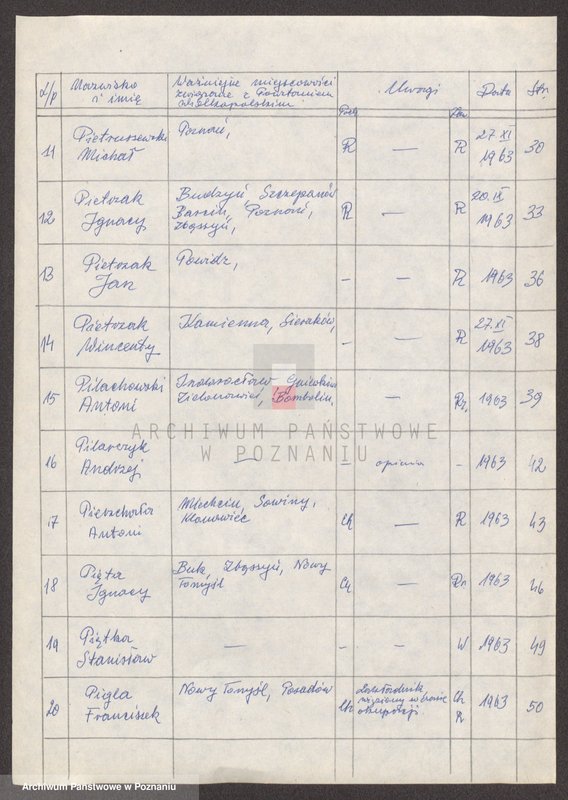 L/p Nazwisko i imię Ważniejsze miejscowości związane z Powstaniem Wielkopolskim Uwagi Data Str.
11 Pietruszewski Michał Poznań, R — R 27 XI 1963 30
12 Pietrzak Ignacy Budzyń, Szczepanów Poznań, Zbąszyń, R — R 20. IX 1963 33
13 Pietrzak Jan Powidz, - — R 1963 36
14 Pietrzak Wincenty Kamienna, Sieraków, - — R 27. XI 1963 38
15 Piłachowski Antoni Inowrocław, — 1963 39
16 Pilarczyk Andrzej — - opinia - 1963 42
17 Pietrzchała Antoni Sowiny, Klonowiec Ch — R 1963 43
18 Pięta Ignacy Buk, Zbąszyń, Nowy Tomyśl — 1963 46
19 Piątka Stanisław — - - W 1963 49
20 Pigla Franciszek Nowy Tomyśl, Posadów Ch zakładnik, więziony w czasie okupacji Ch R 1963 50
ARCHIWUM PAŃSTWOWE
W POZNANIU
Archiwum Państwowe w Poznaniu